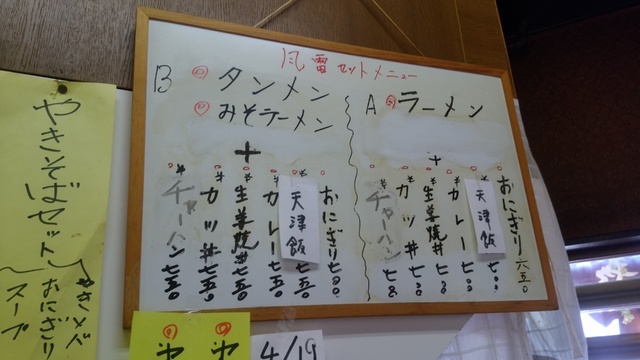 風雷セットメニュー
B
タンメン
みそラーメン
+
おにぎり 七〇〇
天津飯 七五〇
カレー 七五〇
生姜焼丼 七五〇
カツ丼 七五〇
チャーハン 七五〇
A
ラーメン
+
おにぎり 六五〇
天津飯 七〇〇
カレー 七〇〇
生姜焼丼 七〇〇
カツ丼 七〇〇
チャーハン 七〇〇
やきそばセット
やきソバ
おにぎり
スープ
4/19